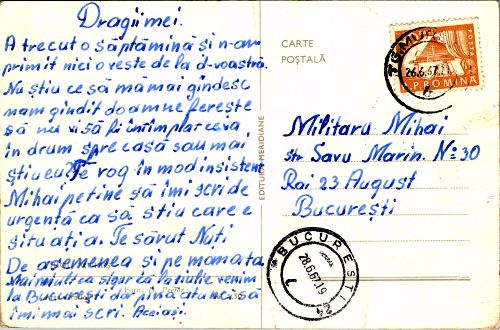 Dragii mei.
A trecut o săptămînă și n-am
primit nici o veste de la d-voastră.
Nu știu ce să mă mai gîndesc
mam gîndit doamne ferește
să nu vi să fi întîmplat ceva
în drum spre casă sau mai
știu eu. Te rog în mod insistent
Mihai pe tine să îmi scri de
urgență ca să știu care e
situația. Te sărut Nuți
De asemenea și pe mamata
Mai mult ca sigur că la iulie venim
la București dar pînă atunci să
îmi mai scri. Aceiași.
EDITURA MERIDIANE
CARTE
POȘTALĂ
TG. MUREȘ
26.6.67.21
POSTA
R.P.ROMINA
Militaru Mihai
str Savu Marin. No 30
Rai 23 August
București
BUCUREȘTI
28.6.67.19